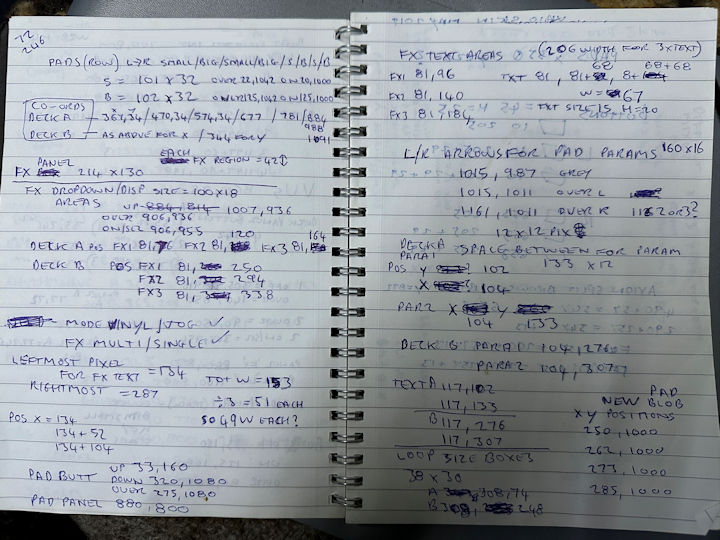 72
246
PADS (ROW) L→R SMALL/BIG/SMALL/BIG/S/B/S/B
S = 101 x 32 OVER 22,1042 ON 20,1000
B = 102 x 32 ON 125,1000
CO-ORDS
DECK A - 367,34/470,34/574,34/677/781/884
988
DECK B - AS ABOVE FOR X / 344 FOR Y 1091
PANEL EACH
FX 214 x 130 FX REGION = 42
FX DROPDOWN/DISP SIZE = 100x18
AREAS UP 1007,936
OVER 906,936
ON/SEL 906,955 120 164
DECK A POS FX1 81, FX2 81, FX3 81,
DECK B POS FX1 81, 250
FX2 81, 294
FX3 81, 338
- MODE VINYL/JOG ✓
FX MULTI/SINGLE ✓
LEFTMOST PIXEL
FOR FX TEXT = 134 TOT W = 153
RIGHTMOST = 287 ÷3 = 51 EACH
POS X = 134 SO 49W EACH?
134+52
134+104
PAD BUTT UP 33,160
DOWN 320,1080
OVER 275,1080
PAD PANEL 880,800
FX TEXT AREAS (206 WIDTH FOR 3xTEXT)
68 68+68
FX1 81,96 TXT 81, 81+ , 8+
FX2 81,140 W= 67
FX3 81,184 TXT SIZE 15 H=20
L/R ARROWS FOR PAD PARAMS 160x16
1015, 987 GREY
1015, 1011 OVER L
1161, 1011 OVER R 2 OR 3?
12x12 PIX
DECK A SPACE BETWEEN FOR PARAM
PARA1 133 x 12
POS Y 102
X 104
PAR2 X Y
104 133
DECK B PARA1 104, 276
PARA2 104, 307
TEXT A 117,102
117,133
B 117, 276
117, 307
PAD
NEW BLOB
XY POSITIONS
250, 1000
262, 1000
273, 1000
285, 1000
LOOP SIZE BOXES
38 x 30
A 308,74
B 248